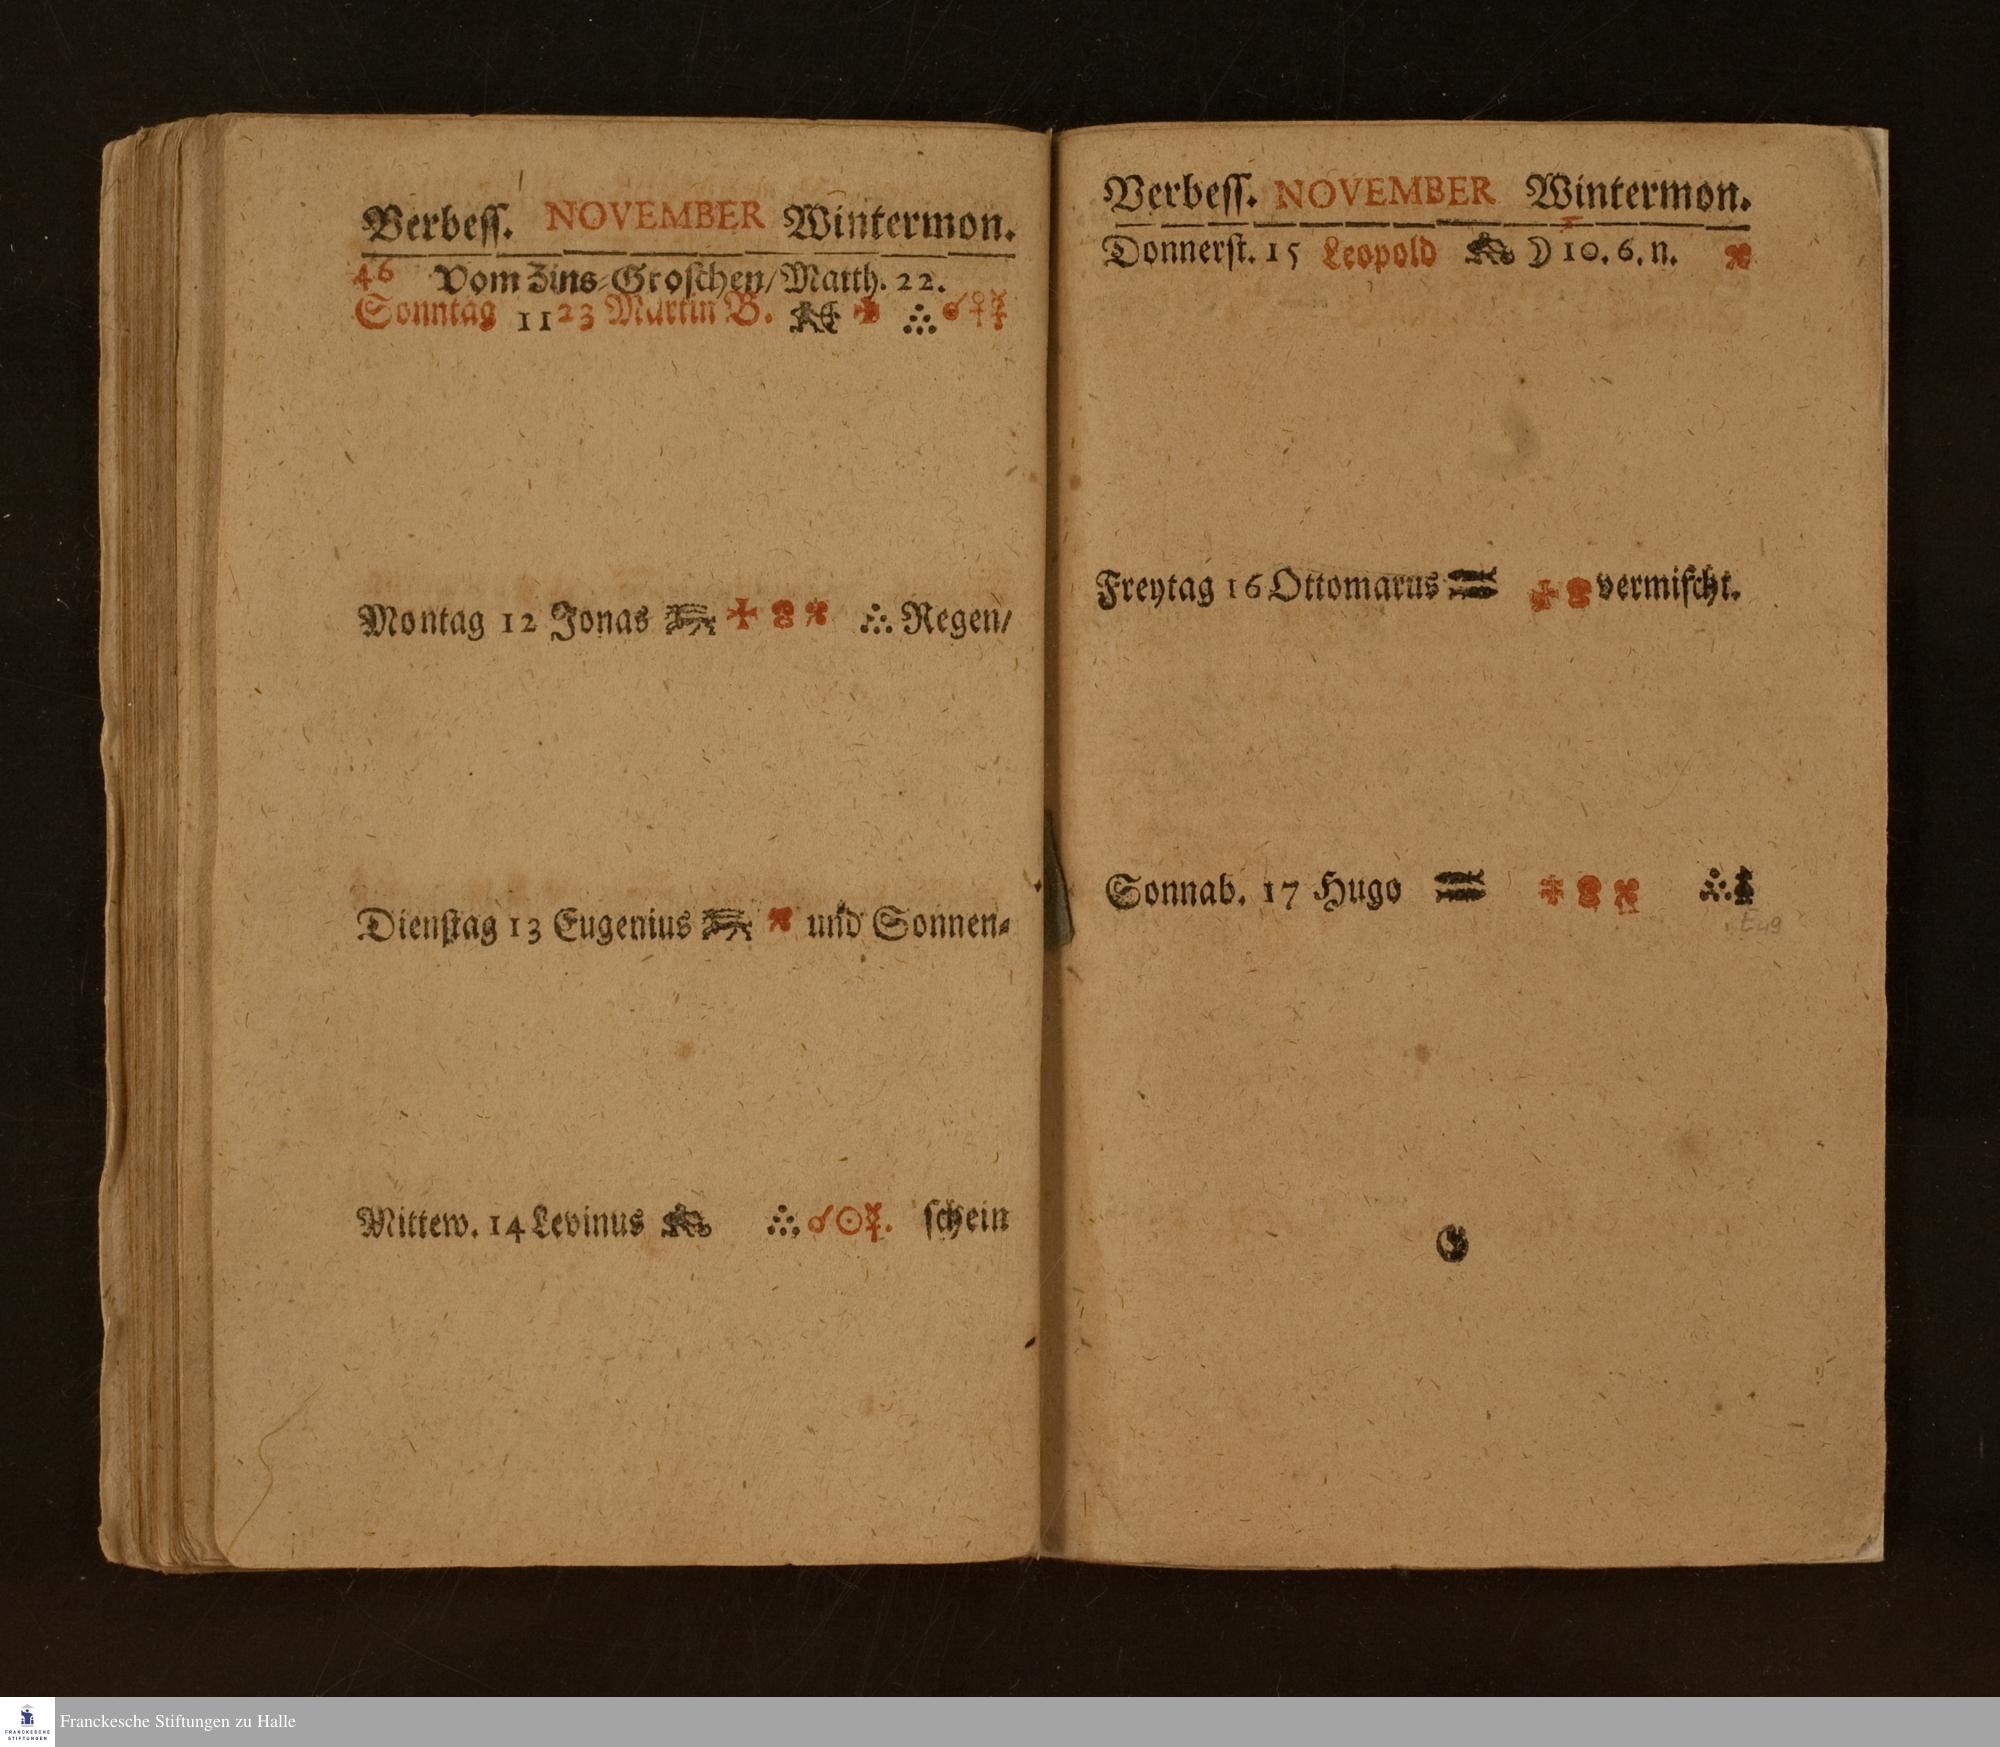 Verbeſſ. NOVEMBER Wintermon.
46 Vom Zins-Groſchen/Matth. 22.
Sonntag 11 23 Martin B. ☌♀☿
Montag 12 Jonas Regen/
Dienſtag 13 Eugenius und Sonnen-
Mittew. 14 Levinus ☌☉☿. ſchein
Verbeſſ. NOVEMBER Wintermon.
Donnerſt. 15 Leopold ☽ 10. 6. n.
Freytag 16 Ottomarus vermiſcht.
Sonnab. 17 Hugo
E49
Franckesche Stiftungen zu Halle
FRANCKESCHE
STIFTUNGEN